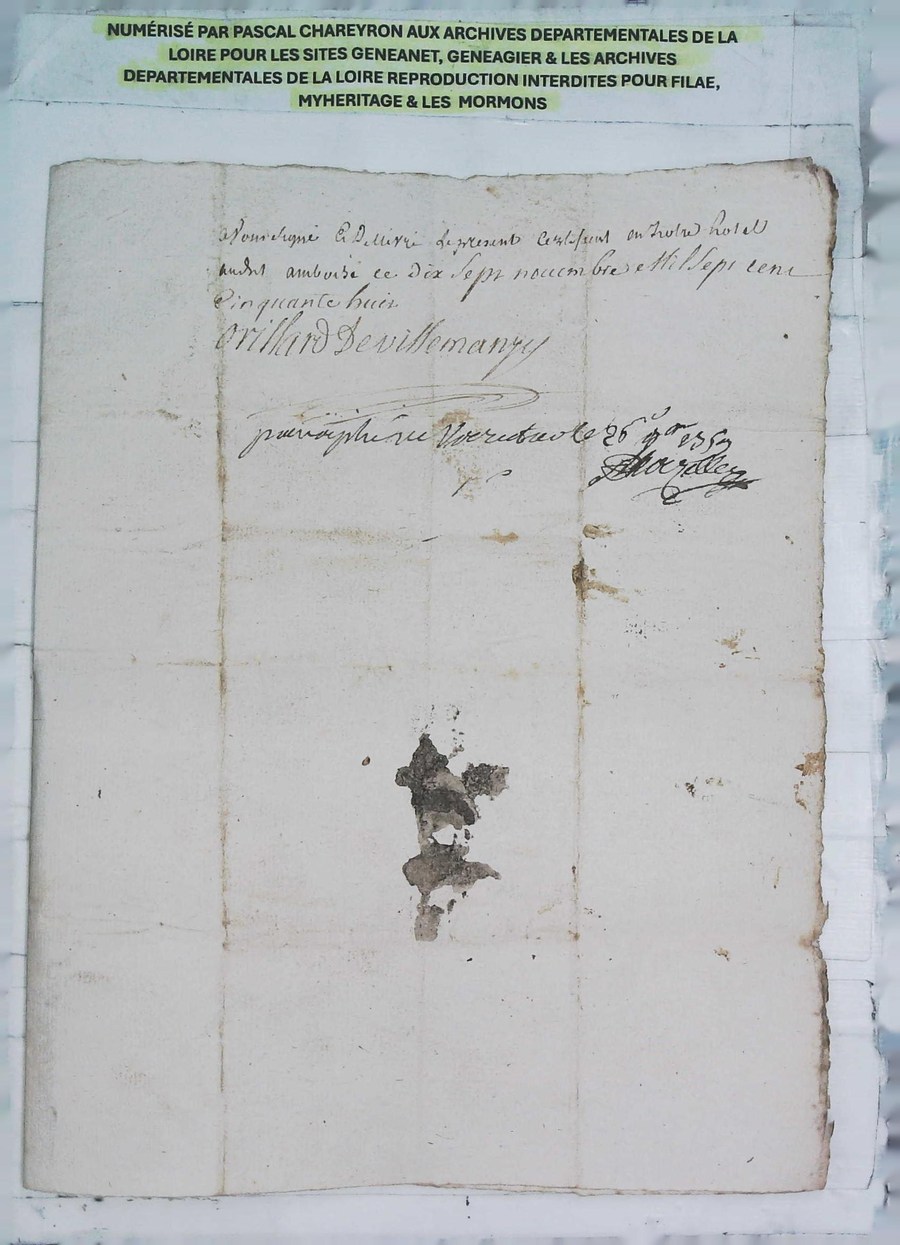 NUMÉRISÉ PAR PASCAL CHAREYRON AUX ARCHIVES DEPARTEMENTALES DE LA
LOIRE POUR LES SITES GENEANET, GENEAGIER & LES ARCHIVES
DEPARTEMENTALES DE LA LOIRE REPRODUCTION INTERDITES POUR FILAE,
MYHERITAGE & LES MORMONS
le present Certificat en Notre hotel
audit amboise ce dix Sept novembre Mil Sept cent
Cinquante huit
Orillard De villemanzy
paraphé ne Varietur le 26